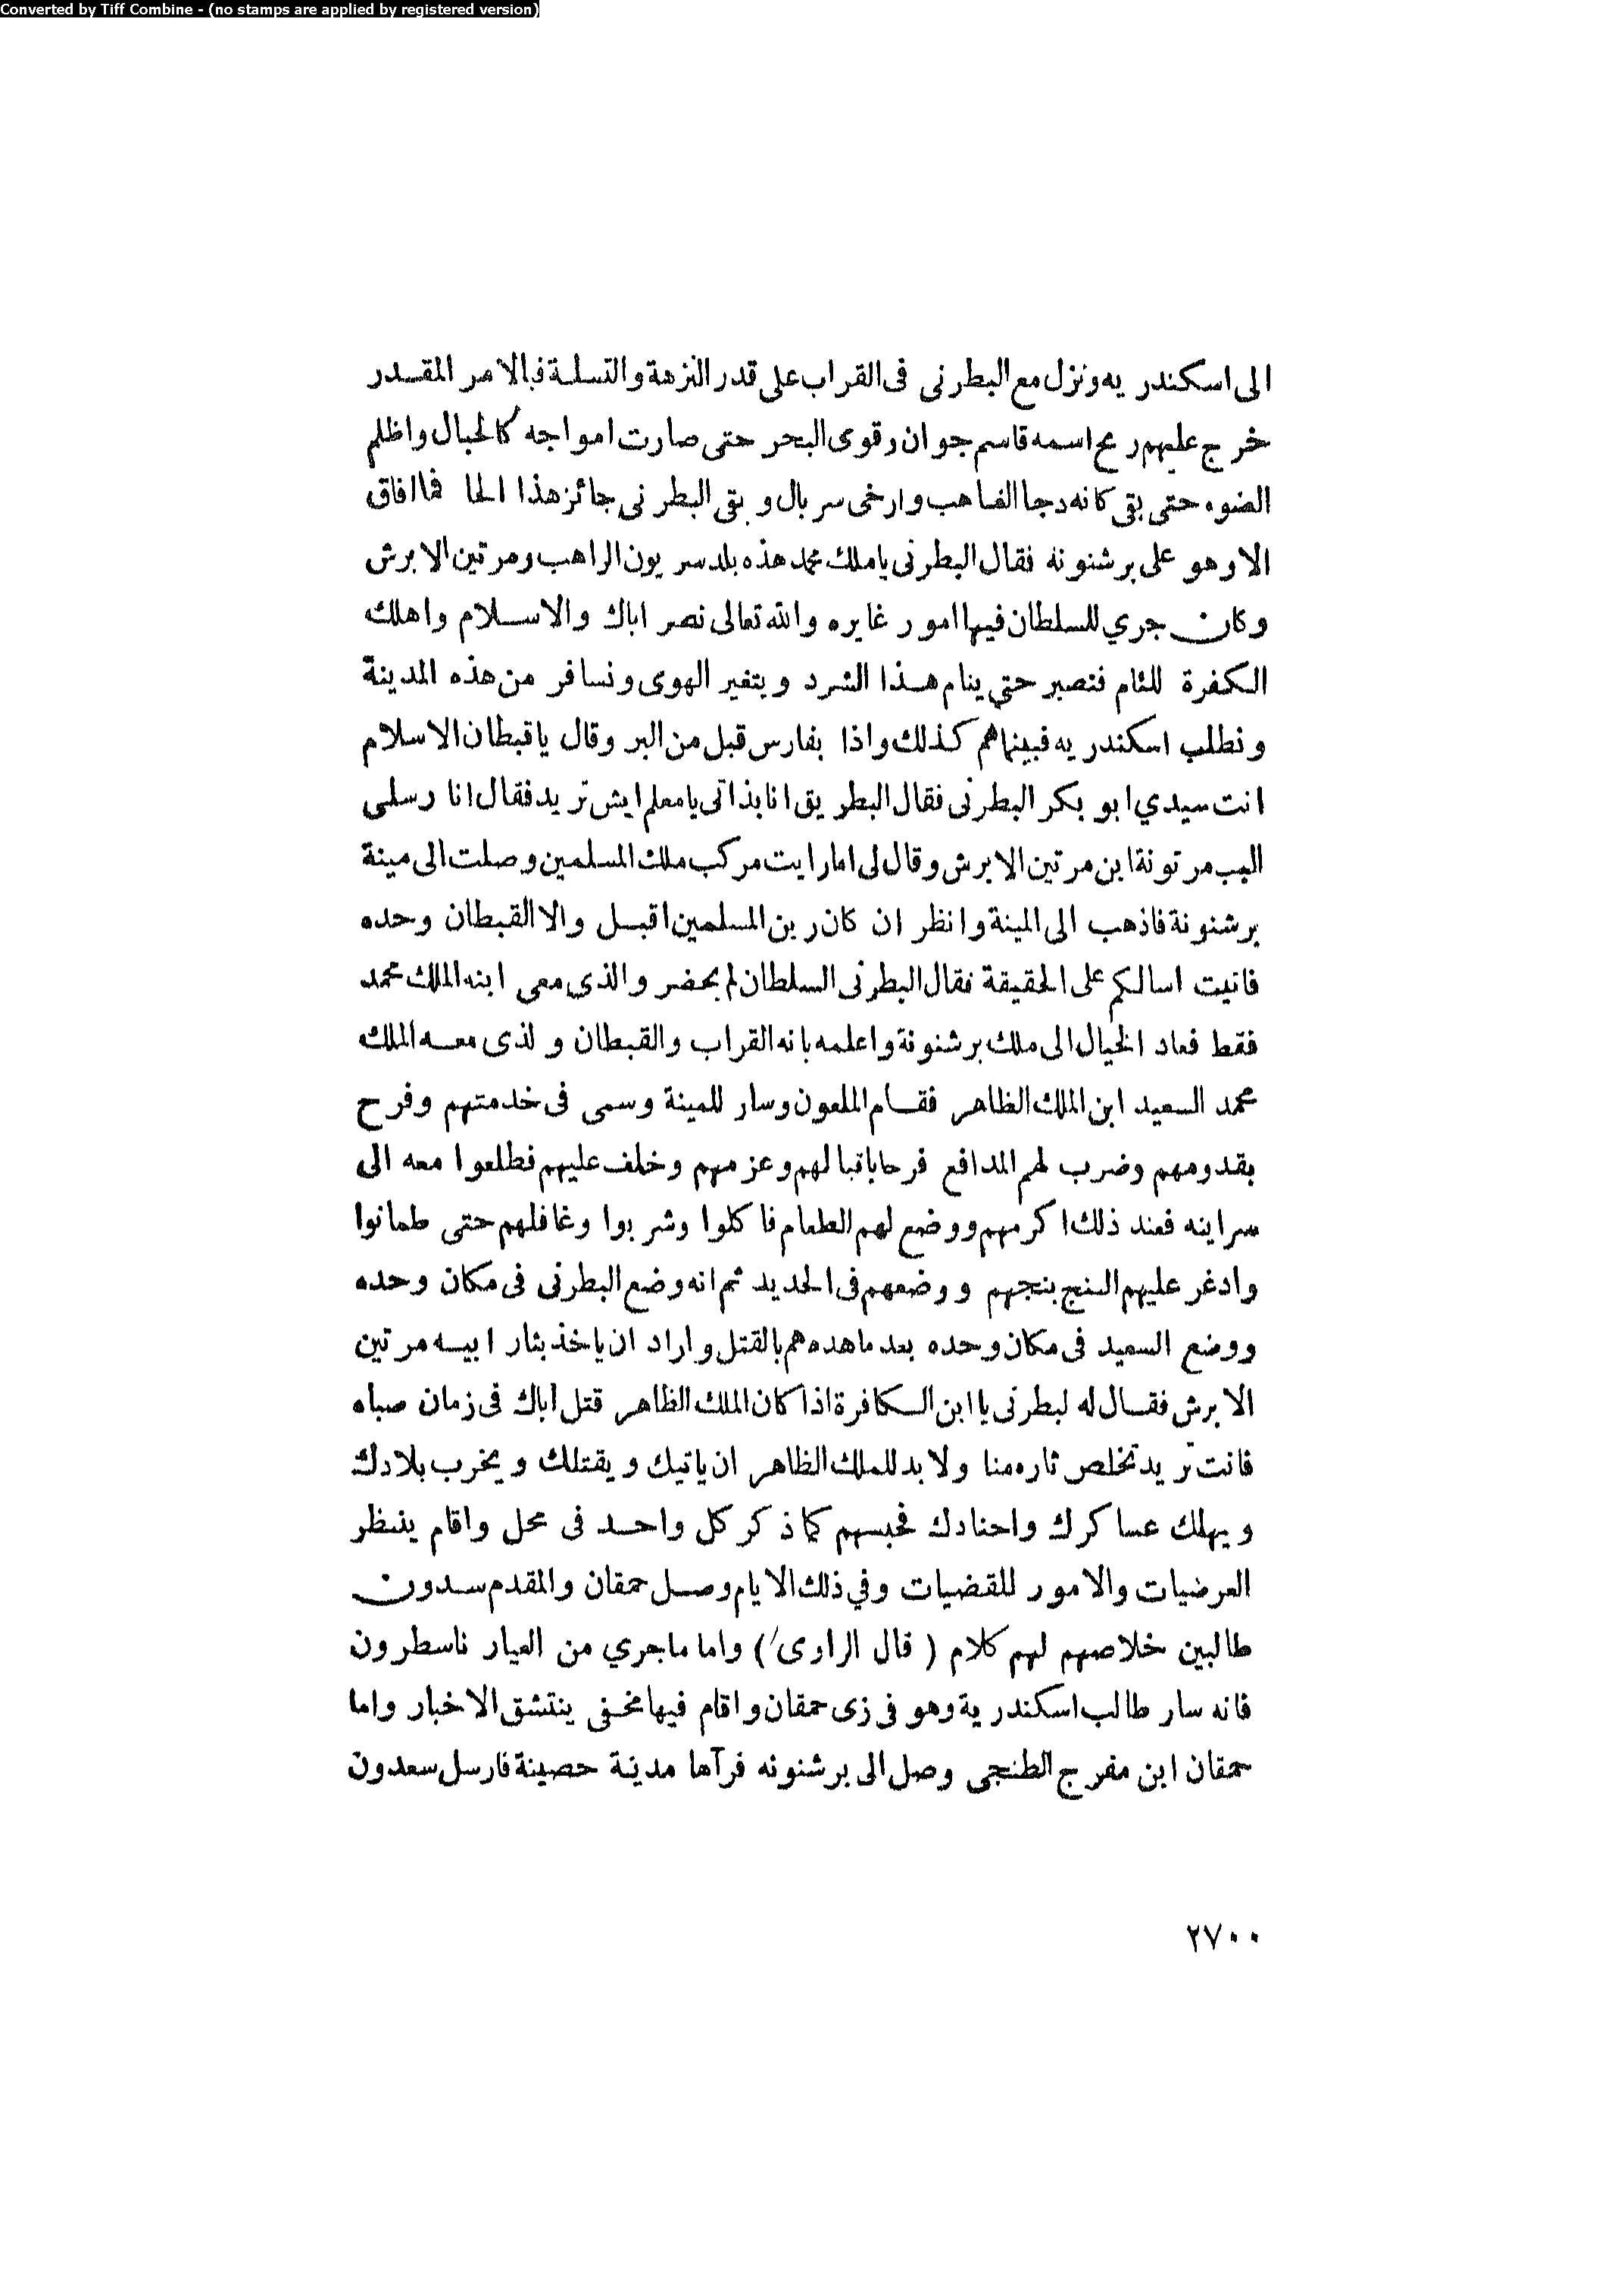 Converted by Tiff Combine - (no stamps are applied by registered version)
الى اسكندر يه ونزل مع البطرنى فى القراب على قدر النزهة والتسلة فبالامر المقـدر
خرج عليهم رمح اسمه قاسم جوان رقوى البحر حتى صارت امواجه كالحبال واظلم
الضوء حتى بقى كانه دجا الغاهب وارخى سربال و بقى البطرنى جائز هذا الحا فما افاق
الا وهو على برشنونة فقال البطرنى ياملك محمد هذه بلد سر يون الراهب ومرتين الابرش
وكان جري للسلطان فيها امور غايره والله تعالى نصر اباك والاسـلام واهلك
الكفرة للئام فنصبر حتي ينام هـذا الشرد ويتغير الهوى ونسافر من هذه المدينة
ونطلب اسكندر يه فبينماهم كذلك واذا بفارس قبل من البر وقال ياقبطان الاسلام
انت سيدي ابو بكر البطرنى فقال البطريق انا بذاتى يامعلم ايش تريد فقال انا رسلى
البب مرتونة ابن مرتين الابرش وقال لى امارايت مركب ملك المسلمين وصلت الى مينة
برشنونة فاذهب الى المينة وانظر ان كان رين المسلمين اقبـل والا القبطان وحده
فاتيت اسالكم على الحقيقة فقال البطرنى السلطان لم يحضر والذى معى ابنه الملك محمد
فقط فعاد الخيال الى ملك برشنونة واعلمه بانه القراب والقبطان ولذى معـه الملك
محمد السعيد ابن الملك الظاهر فقـام الملعون وسار للمينة وسمى فى خدمتهم وفرح
بقدومهم وضرب لهم المدافع فرحا باقبالهم وعزمهم وخلف عليهم فطلعوا معه الى
سراينه فعند ذلك اكرمهم ووضع لهم الطعام فاكلوا وشربوا وغافلهم حتى طمانوا
وادغر عليهم البنج بنجهم ووضعهم فى الحديد ثم انه وضع البطرنى فى مكان وحده
ووضع السعيد فى مكان وحده بعد ماهددهم بالقتل واراد ان ياخذ بثار ابيـه مرتين
الابرش فقـال له لبطرنى يا ابن الـكافرة اذا كان الملك الظاهر قتل اباك فى زمان صباه
فانت تريد تخلص ثاره منا ولا بد للملك الظاهر ان ياتيك ويقتلك ويخرب بلادك
ويهلك عساكرك واحنادك فحبسهم كما ذكر كل واحـد فى محل واقام ينظر
العرضيات والامور للقضيات وفي ذلك الايام وصـل حمقان والمقدم سـدون
طالبين خلاصهم لهم كلام ( قال الراوى ) واما ماجري من العيار ناسطرون
فانه سار طالب اسكندرية وهو فى زى حمقان واقام فيها مخفى ينتشق الاخبار واما
حمقان ابن مفرج الطنجى وصل الى برشنونه فرآها مدينة حصينة فارسل سعدون
٢٧٠٠